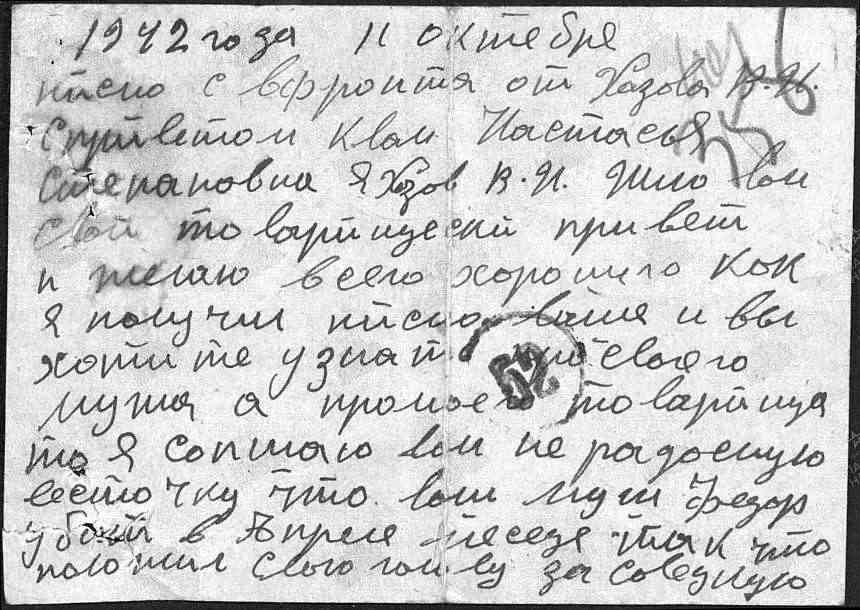 1942 года 11 октебре
писмо с вфронта от Хазова В.И.
Спртветом квам Настасья
Степановна я Хазов В.И. Шлю вам
свой товарищеский привет
и желаю всего хорошиго как
я получил писмо ваше и вы
хотите узнат своего
мужа а промоего товарища
то я сопшаю вам не радосную
весточку что ваш муж Федор
убит в Апреле месеце так что
положил свою голову за
52